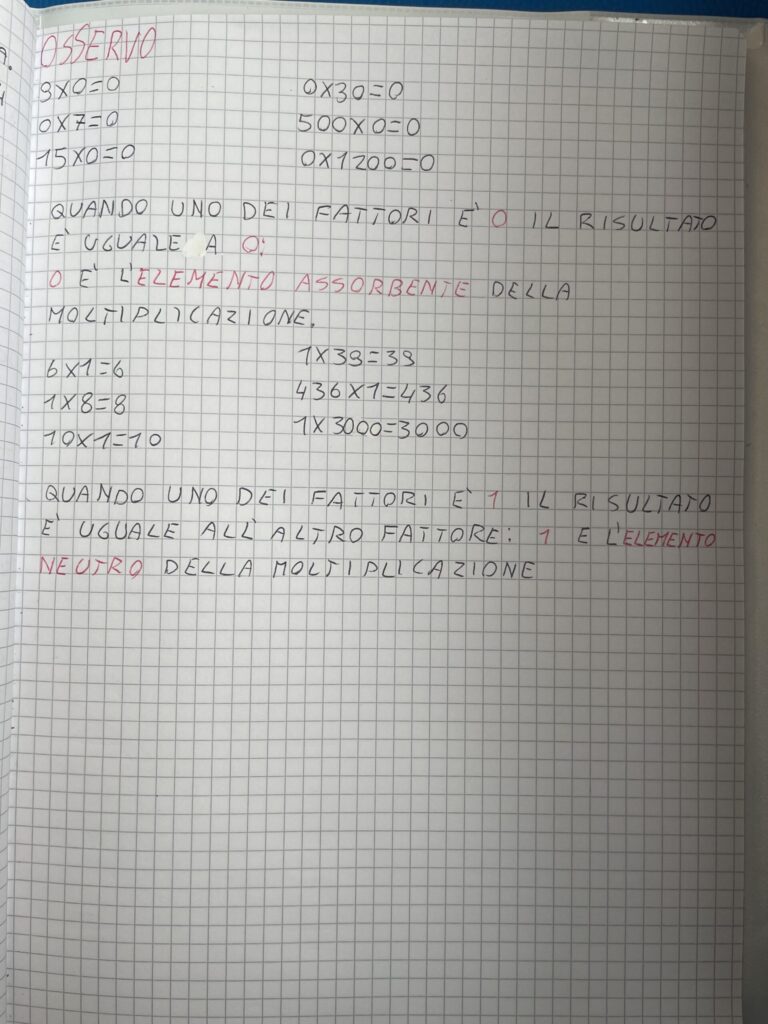 OSSERVO
9X0=0 0X30=0
0X7=0 500X0=0
15X0=0 0X1200=0
QUANDO UNO DEI FATTORI E' 0 IL RISULTATO
E' UGUALE A 0:
0 E' L'ELEMENTO ASSORBENTE DELLA
MOLTIPLICAZIONE.
6X1=6 1X39=39
1X8=8 436X1=436
10X1=10 1X3000=3000
QUANDO UNO DEI FATTORI E' 1 IL RISULTATO
E' UGUALE ALL'ALTRO FATTORE: 1 E L'ELEMENTO
NEUTRO DELLA MOLTIPLICAZIONE